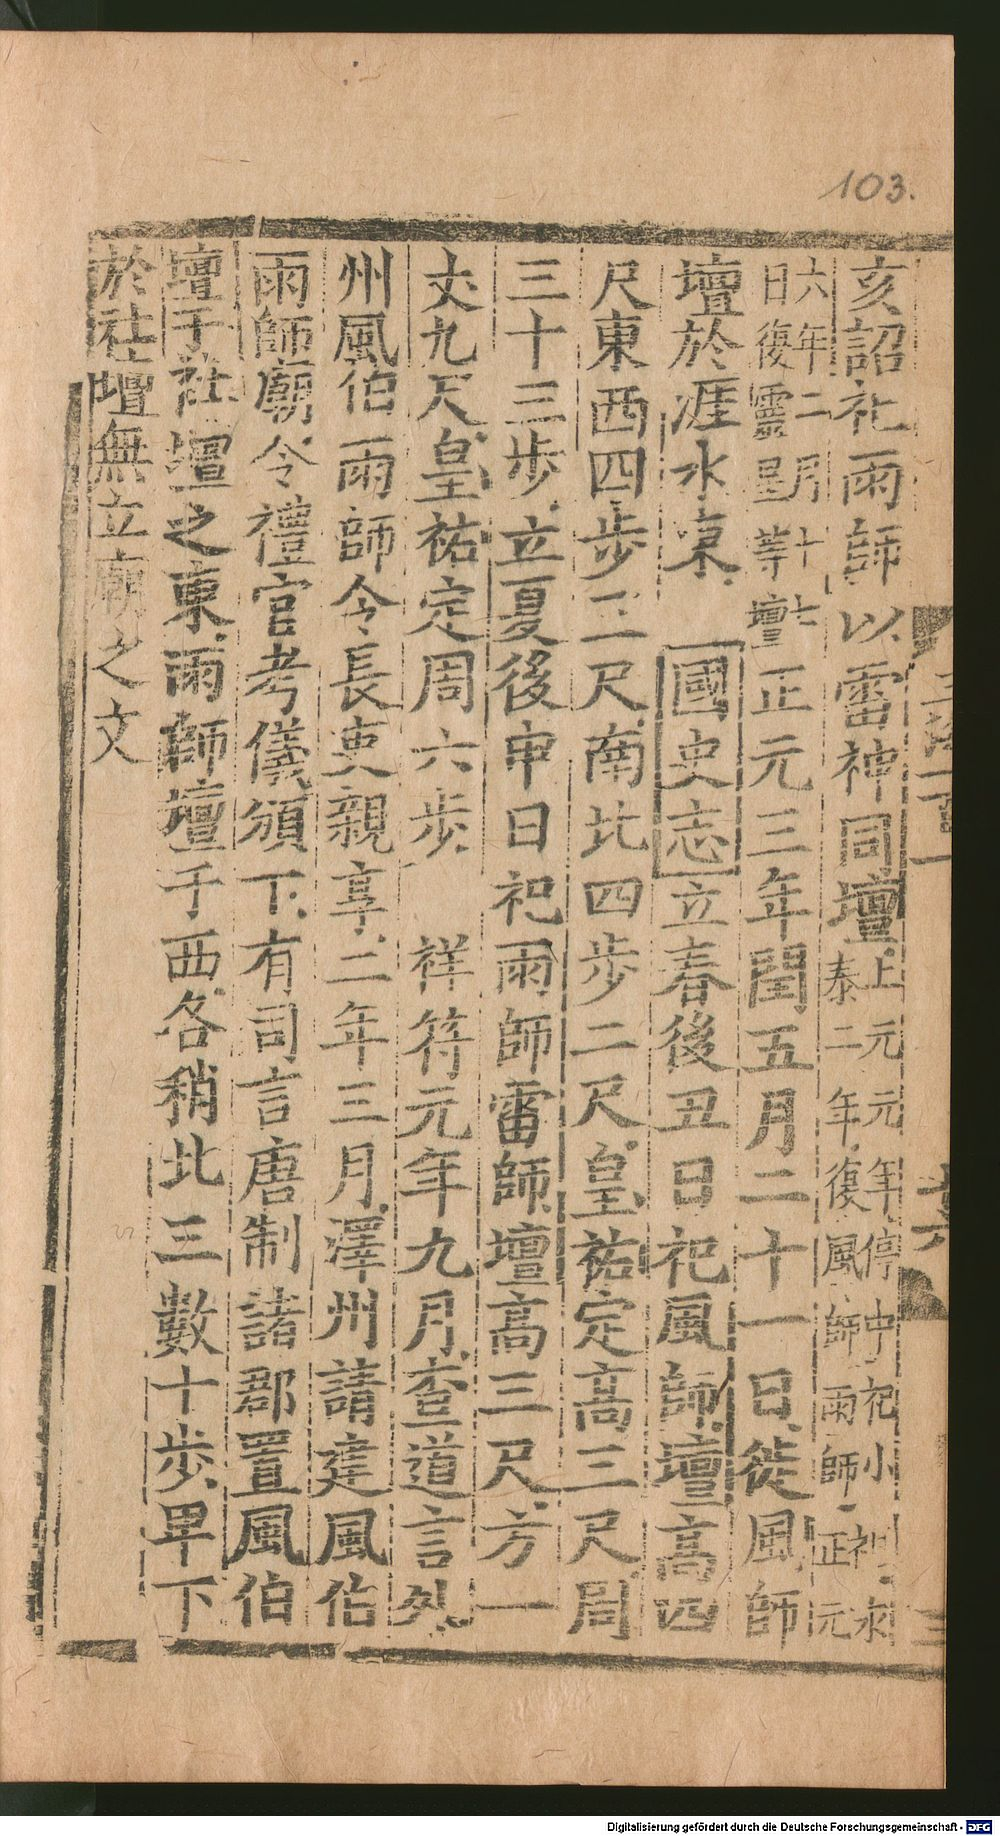 103.
亥詔祀雨師以雷神同壇上元元年停中祀小祀永
泰二年復風師雨師正元
六年二月十七
日復靈星等壇正元三年閏五月二十一日徙風師
壇於滻水東國史志立春後丑日祀風師壇高四
尺東西四步三尺南北四步二尺皇祐定高三尺周
三十三步立夏後申日祀雨師雷師壇高三尺方一
丈九尺皇祐定周六步祥符元年九月查道言外
州風伯雨師令長吏親享二年三月澤州請建風伯
雨師廟令禮官考儀頒下有司言唐制諸郡置風伯
壇于社壇之東雨師壇于西各稍北三數十步卑下
於社壇無立廟之文
Digitalisierung gefördert durch die Deutsche Forschungsgemeinschaft - DFG